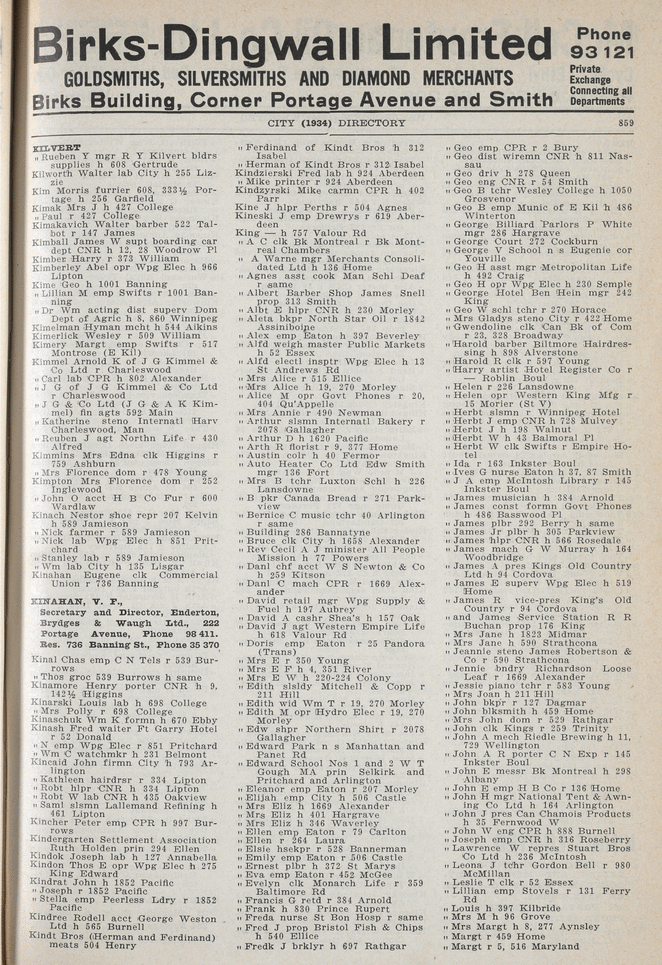 Birks-Dingwall Limited
GOLDSMITHS, SILVERSMITHS AND DIAMOND MERCHANTS
Birks Building, Corner Portage Avenue and Smith
Phone
93 121
Private
Exchange
Connecting all
Departments
CITY (1934) DIRECTORY 859
KILVERT
„ Rueben Y mgr R Y Kilvert bldrs
supplies h 608 Gertrude
Kilworth Walter lab City h 255 Liz-
zie
Kim Morris furrier 608, 333½ Por-
tage h 256 Garfield
Kimak Mrs J h 427 College
„ Paul r 427 College
Kimakavich Walter barber 522 Tal-
bot r 147 James
Kimball James W supt boarding car
dept CNR h 12, 28 Woodrow Pl
Kimber Harry r 373 William
Kimberley Abel opr Wpg Elec h 966
Lipton
Kime Geo h 1001 Banning
„ Lillian M emp Swifts r 1001 Ban-
ning
„ Dr Wm acting dist superv Dom
Dept of Agric h 8, 860 Winnipeg
Kimelman Hyman mcht h 544 Aikins
Kimerlick Wesley r 509 William
Kimery Margt emp Swifts r 517
Montrose (E Kil)
Kimmel Arnold K of J G Kimmel &
Co Ltd r Charleswood
„ Carl lab CPR h 802 Alexander
„ J G of J G Kimmel & Co Ltd
r Charleswood
„ J G & Co Ltd (J G & A K Kim-
mel) fin agts 592 Main
„ Katherine steno Internatl Harv
Charleswood, Man
„ Reuben J agt Northn Life r 430
Alfred
Kimmins Mrs Edna clk Higgins r
759 Ashburn
„ Mrs Florence dom r 478 Young
Kimpton Mrs Florence dom r 252
Inglewood
„ John O acct H B Co Fur r 600
Wardlaw
Kinach Nestor shoe repr 207 Kelvin
h 589 Jamieson
„ Nick farmer r 589 Jamieson
„ Nick lab Wpg Elec h 851 Prit-
chard
„ Stanley lab r 589 Jamieson
„ Wm lab City h 135 Lisgar
Kinahan Eugene clk Commercial
Union r 736 Banning
KINAHAN, V. F.,
Secretary and Director, Enderton,
Brydges & Waugh Ltd., 222
Portage Avenue, Phone 98 411.
Res. 736 Banning St., Phone 35 370
Kinal Chas emp C N Tels r 539 Bur-
rows
„ Thos groc 539 Burrows h same
Kinamore Henry porter CNR h 9,
142½ Higgins
Kinarski Louis lab h 698 College
„ Mrs Polly r 698 College
Kinaschuk Wm K formn h 670 Ebby
Kinash Fred waiter Ft Garry Hotel
r 52 Donald
„ N emp Wpg Elec r 851 Pritchard
„ Wm C watchmkr h 231 Belmont
Kincaid John firmn City h 793 Ar-
lington
„ Kathleen hairdrsr r 334 Lipton
„ Robt hlpr CNR h 334 Lipton
„ Robt W lab CNR h 435 Oakview
„ Saml slsmn Lallemand Refining h
461 Lipton
Kincher Peter emp CPR h 997 Bur-
rows
Kindergarten Settlement Association
Ruth Holden prin 294 Ellen
Kindok Joseph lab h 127 Annabella
Kindon Thos E opr Wpg Elec h 275
King Edward
Kindrat John h 1852 Pacific
„ Joseph r 1852 Pacific
„ Stella emp Peerless Ldry r 1852
Pacific
Kindree Rodell acct George Weston
Ltd h 565 Burnell
Kindt Bros (Herman and Ferdinand)
meats 504 Henry
„ Ferdinand of Kindt Bros h 312
Isabel
„ Herman of Kindt Bros r 312 Isabel
Kindzierski Fred lab h 924 Aberdeen
„ Mike printer r 924 Aberdeen
Kindzyrski Mike carmn CPR h 402
Parr
Kine J hlpr Perths r 504 Agnes
Kineski J emp Drewrys r 619 Aber-
deen
King — h 757 Valour Rd
„ A C clk Bk Montreal r Bk Mont-
real Chambers
„ A Warne mgr Merchants Consoli-
dated Ltd h 136 Home
„ Agnes asst cook Man Schl Deaf
r same
„ Albert Barber Shop James Snell
prop 313 Smith
„ Albt E hlpr CNR h 230 Morley
„ Aleta bkpr North Star Oil r 1842
Assiniboine
„ Alex emp Eaton h 397 Beverley
„ Alfd weigh master Public Markets
h 52 Essex
„ Alfd electl insptr Wpg Elec h 13
St Andrews Rd
„ Mrs Alice r 515 Ellice
„ Mrs Alice h 19, 270 Morley
„ Alice M opr Govt Phones r 20,
404 Qu'Appelle
„ Mrs Annie r 490 Newman
„ Arthur slsmn Internatl Bakery r
2078 Gallagher
„ Arthur D h 1620 Pacific
„ Arth R florist r 9, 377 Home
„ Austin colr h 40 Fermor
„ Auto Heater Co Ltd Edw Smith
mgr 136 Fort
„ Mrs B tchr Luxton Schl h 226
Lansdowne
„ B pkr Canada Bread r 271 Park-
view
„ Bernice C music tchr 40 Arlington
r same
„ Building 286 Bannatyne
„ Bruce clk City h 1658 Alexander
„ Rev Cecil A J minister All People
Mission h 77 Powers
„ Danl chf acct W S Newton & Co
h 259 Kitson
„ Danl C mach CPR r 1669 Alex-
ander
„ David retail mgr Wpg Supply &
Fuel h 197 Aubrey
„ David A cashr Shea's h 157 Oak
„ David J agt Western Empire Life
h 618 Valour Rd
„ Doris emp Eaton r 25 Pandora
(Trans)
„ Mrs E r 350 Young
„ Mrs E F h 4, 351 River
„ Mrs E W h 220-224 Colony
„ Edith slsldy Mitchell & Copp r
211 Hill
„ Edith wid Wm T r 19, 270 Morley
„ Edith M opr Hydro Elec r 19, 270
Morley
„ Edw shpr Northern Shirt r 2078
Gallagher
„ Edward Park n s Manhattan and
Panet Rd
„ Edward School Nos 1 and 2 W T
Gough MA prin Selkirk and
Pritchard and Arlington
„ Eleanor emp Eaton r 207 Morley
„ Elijah emp City h 506 Castle
„ Mrs Eliz h 1669 Alexander
„ Mrs Eliz h 401 Hargrave
„ Mrs Eliz h 346 Waverley
„ Ellen emp Eaton r 79 Carlton
„ Ellen r 264 Laura
„ Elsie hsekpr r 528 Bannerman
„ Emily emp Eaton r 506 Castle
„ Ernest plbr h 372 St Marys
„ Eva emp Eaton r 452 McGee
„ Evelyn clk Monarch Life r 359
Baltimore Rd
„ Francis G retd r 384 Arnold
„ Frank h 830 Prince Rupert
„ Freda nurse St Bon Hosp r same
„ Fred J prop Bristol Fish & Chips
h 540 Ellice
„ Fredk J brklyr h 697 Rathgar
„ Geo emp CPR r 2 Bury
„ Geo dist wiremn CNR h 811 Nas-
sau
„ Geo driv h 278 Queen
„ Geo eng CNR r 54 Smith
„ Geo B tchr Wesley College h 1050
Grosvenor
„ Geo B emp Munic of E Kil h 486
Winterton
„ George Billiard Parlors P White
mgr 286 Hargrave
„ George Court 272 Cockburn
„ George V School n s Eugenie cor
Youville
„ Geo H asst mgr Metropolitan Life
h 492 Craig
„ Geo H opr Wpg Elec h 230 Semple
„ George Hotel Ben Hein mgr 242
King
„ Geo W schl tchr r 270 Horace
„ Mrs Gladys steno City r 422 Home
„ Gwendoline clk Can Bk of Com
r 23, 328 Broadway
„ Harold barber Biltmore Hairdres-
sing h 898 Alverstone
„ Harold R clk r 597 Young
„ Harry artist Hotel Register Co r
— Roblin Boul
„ Helen r 226 Lansdowne
„ Helen opr Western King Mfg r
15 Morier (St V)
„ Herbt slsmn r Winnipeg Hotel
„ Herbt J emp CNR h 728 Mulvey
„ Herbt J h 198 Walnut
„ Herbt W h 43 Balmoral Pl
„ Herbt W clk Swifts r Empire Ho-
tel
„ Ida r 163 Inkster Boul
„ Ives G nurse Eaton h 37, 87 Smith
„ J A emp McIntosh Library r 145
Inkster Boul
„ James musician h 384 Arnold
„ James const formn Govt Phones
h 486 Basswood Pl
„ James plbr 292 Berry h same
„ James Jr plbr h 305 Parkview
„ James hlpr CNR h 566 Rosedale
„ James mach G W Murray h 164
Woodbridge
„ James A pres Kings Old Country
Ltd h 94 Cordova
„ James E superv Wpg Elec h 519
Home
„ James R vice-pres King's Old
Country r 94 Cordova
„ and James Service Station R R
Buchan prop 176 King
„ Mrs Jane h 1823 Midmar
„ Mrs Jane h 590 Strathcona
„ Jeannie steno James Robertson &
Co r 590 Strathcona
„ Jennie bndry Richardson Loose
Leaf r 1669 Alexander
„ Jessie piano tchr r 583 Young
„ Mrs Joan h 211 Hill
„ John bkpr r 127 Dagmar
„ John blksmith h 459 Home
„ Mrs John dom r 529 Rathgar
„ John clk Kings r 259 Trinity
„ John A mech Riedle Brewing h 11,
729 Wellington
„ John A R porter C N Exp r 145
Inkster Boul
„ John E messr Bk Montreal h 298
Albany
„ John E emp H B Co r 136 Home
„ John H mgr National Tent & Awn-
ing Co Ltd h 164 Arlington
„ John J pres Can Chamois Products
h 35 Fernwood W
„ John W eng CPR h 888 Burnell
„ Joseph emp CNR h 316 Roseberry
„ Lawrence W repres Stuart Bros
Co Ltd h 236 McIntosh
„ Leona J tchr Gordon Bell r 980
McMillan
„ Leslie T clk r 52 Essex
„ Lillian emp Stovels r 131 Ferry
Rd
„ Louis h 397 Kilbride
„ Mrs M h 96 Grove
„ Mrs Margt h 8, 277 Aynsley
„ Margt r 459 Home
„ Margt r 5, 516 Maryland